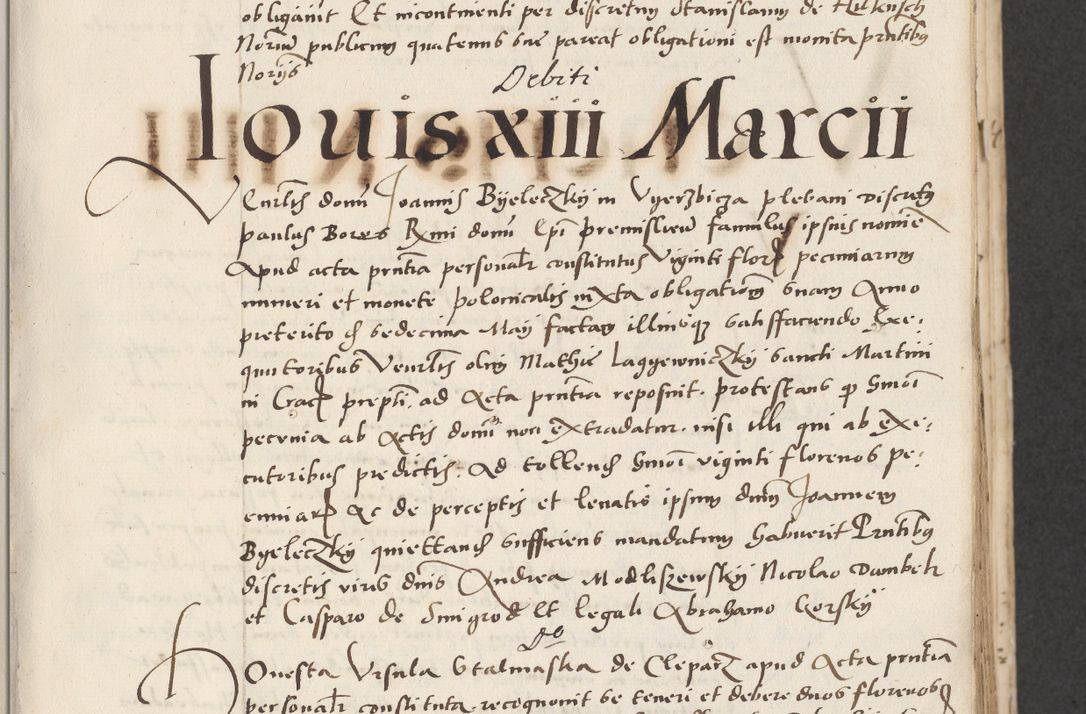 obliganit Et incontinenti per discretum Stanislaum de Hilkusch
Noriu publicum quatenus sue pareat obligationi est monita pntibq
Norijs
Debiti
Iouis xiiii Marcii
Vcurtis domi Joannis Byeleczkÿ in Vyerzbicza plebani discretq
paulus Bores Rmi domi Epi Premislien famulus ipsius nomie
Apud acta pntia personalr constitutus Viginti flor pecuniarum
numeri et monete polonicalis iuxta obligationem suam Anno
preterito die sedecima Maÿ factam illiusqz satisffaciendo Exe:
quutoribus Venrlis olim Mathie Laggewniczkÿ sancti Martini
in Crac prepti. ad Acta pntia reposuit. protestans qp smoi
pecunia ab Actis domi non extradatur. nisi illi qui ab exe:
cutoribus predictis. Ad tollend smoi viginti florenos pe:
cuniar Ac de perceptis et leuatis ipsum dnum Joannem
Byeleczkÿ quiettand sufficiens mandatum habuerit Pntibq
discretis viris dnis Andrea Modliszewskÿ Nicolao Dambek
et Casparo de Smigrod Et legali Abrahamo Gorskÿ
Honesta Vrsula Stalmaska de Cleparz apud Acta pntia
personalr constituta. recognouit se teneri et debere duos florenos